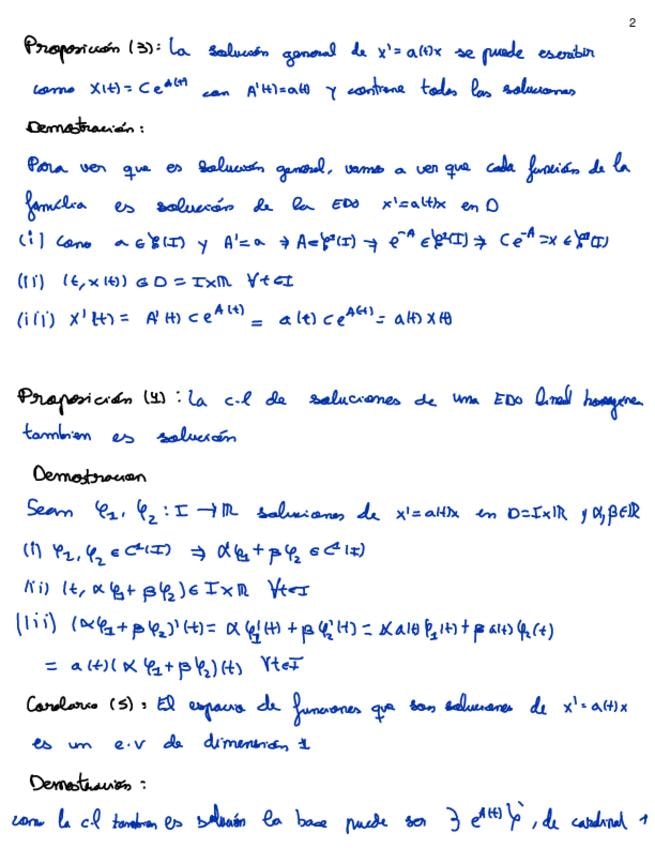 2
Proposición (3): La solución general de x' = a(t)x se puede escribir
como X(t) = C e^{A(t)} con A'(t)=a(t) y contiene todas las soluciones
Demostración:
Para ver que es solución general, vamos a ver que cada función de la
família es solución de la EDO x'=a(t)x en D
(i) Como a ∈ C(I) y A'=a → A ∈ C¹(I) → e^{-A} ∈ C¹(I) → Ce^{-A} = x ∈ C¹(I)
(ii) (t, x(t)) ∈ D = I×ℝ ∀t∈I
(iii) X'(t) = A'(t) C e^{A(t)} = a(t) C e^{A(t)} = a(t) X(t)
Proposición (4): La c.l de soluciones de una EDO lineal homogenea
tambien es solución
Demostracion
Sean φ₁, φ₂ : I → ℝ soluciones de x'=a(t)x en D=I×ℝ y α,β∈ℝ
(i) φ₁, φ₂ ∈ C¹(I) ⇒ αφ₁ + βφ₂ ∈ C¹(I)
(ii) (t, αφ₁ + βφ₂) ∈ I×ℝ ∀t∈I
(iii) (αφ₁ + βφ₂)'(t) = αφ₁'(t) + βφ₂'(t) = α a(t) φ₁(t) + β a(t) φ₂(t)
= a(t)(αφ₁ + βφ₂)(t) ∀t∈I
Corolario (5): El espacio de funciones que son soluciones de x' = a(t)x
es un e.v de dimensión 1
Demostración:
como la c.l tambien es solución la base puede ser {e^{A(t)}}, de cardinal 1